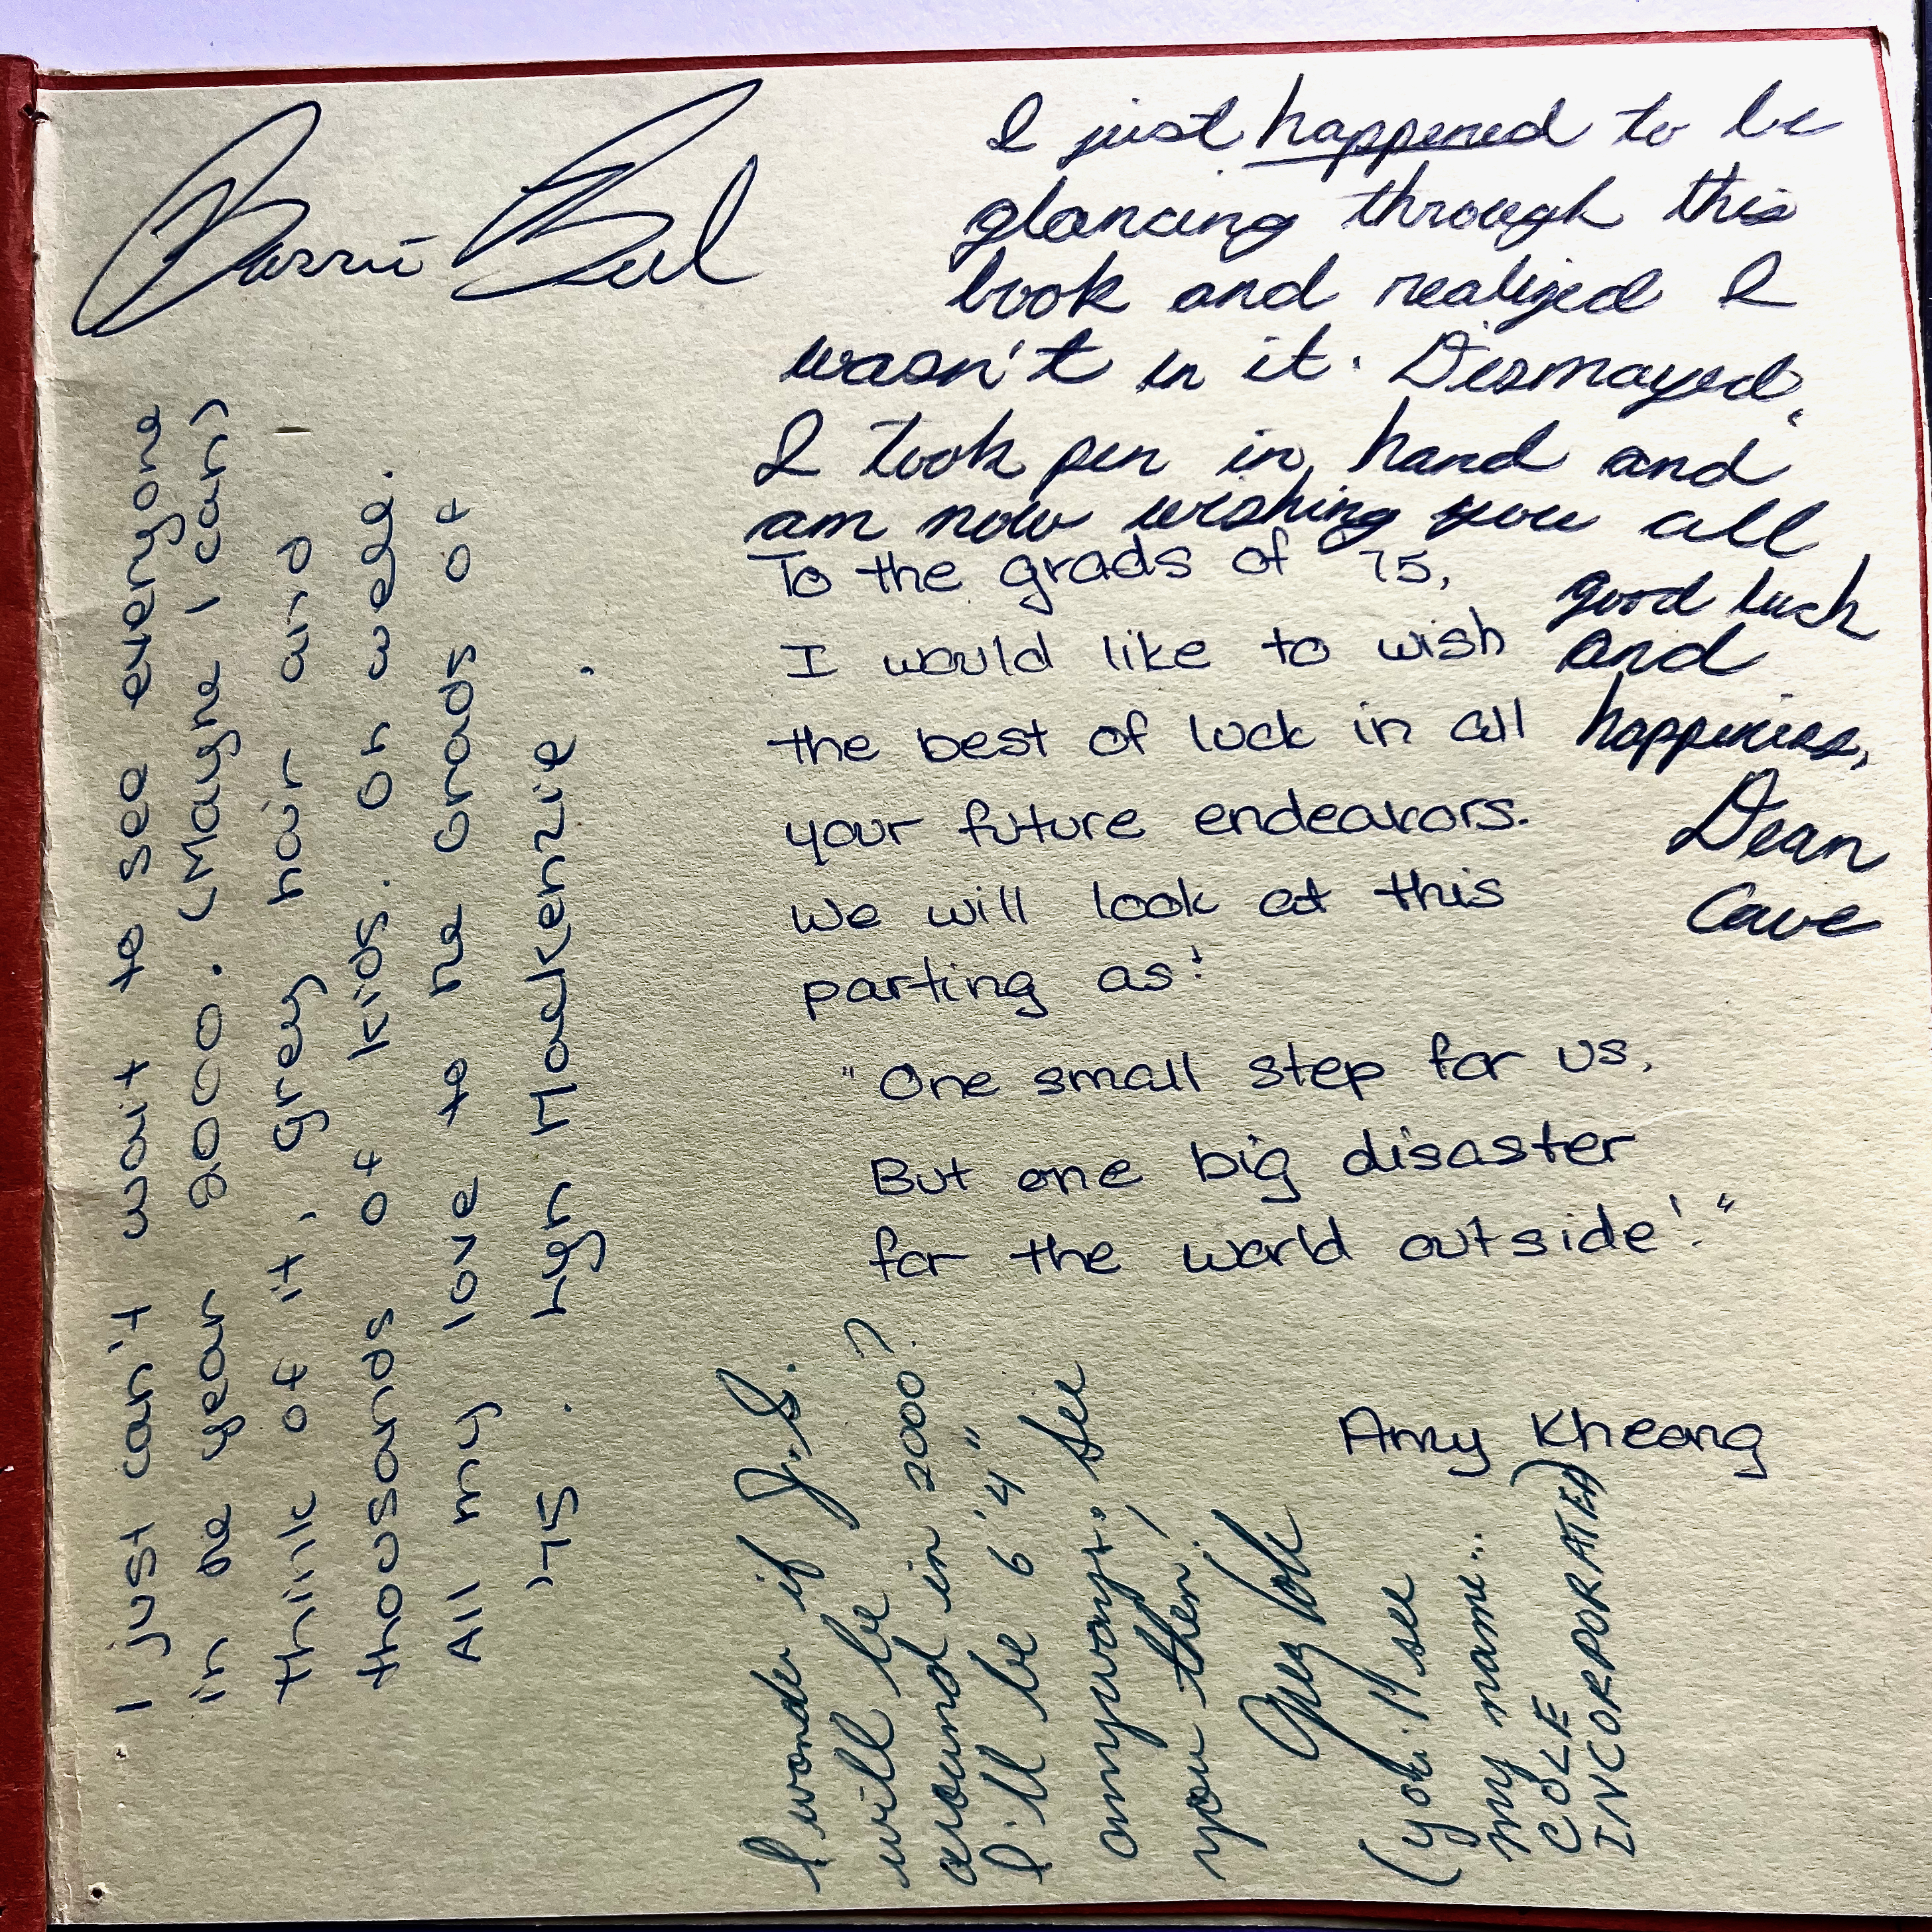 Barrie
I just happened to be
glancing through this
book and realized I
wasn't in it. Dismayed,
I took pen in hand and
am now wishing you all
good luck
and
happiness,
Dean
Cave
To the grads of '75,
I would like to wish
the best of luck in all
your future endeavors.
We will look at this
parting as:
"One small step for us,
But one big disaster
for the world outside!"
Amy Kheong
I just can't wait to see everyone
in the year 2000. (Maybe I can)
think of it, grey hair and
thousands of kids. Oh well.
All my love to the Grads of
'75. Lyn Mackenzie.
I wonder if J.S.
will be
around in 2000?
I'll be 6'4"
anyways. See
you then,
Greg
(you'll see
my name...
COLE
INCORPORATED)